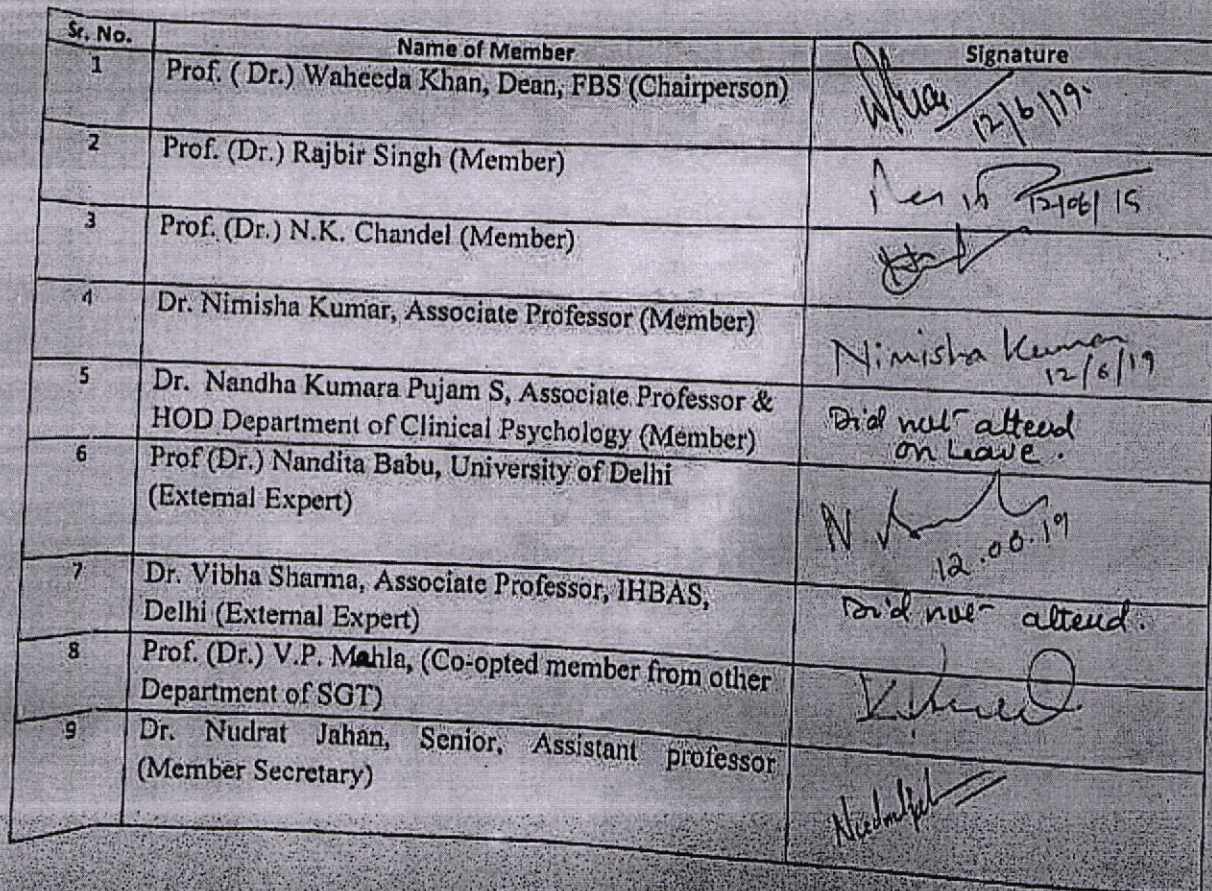 Sr. No. Name of Member Signature
1 Prof. ( Dr.) Waheeda Khan, Dean, FBS (Chairperson)
12/6/19.
2 Prof. (Dr.) Rajbir Singh (Member)
12/06/19
3 Prof. (Dr.) N.K. Chandel (Member)
4 Dr. Nimisha Kumar, Associate Professor (Member) Nimisha Kumar
12/6/19
5 Dr. Nandha Kumara Pujam S, Associate Professor & Did not attend
HOD Department of Clinical Psychology (Member) on Leave.
6 Prof (Dr.) Nandita Babu, University of Delhi
(External Expert)
12.06.19
7 Dr. Vibha Sharma, Associate Professor, IHBAS, Did not attend.
Delhi (External Expert)
8 Prof. (Dr.) V.P. Mahla, (Co-opted member from other
Department of SGT)
9 Dr. Nudrat Jahan, Senior, Assistant professor
(Member Secretary)